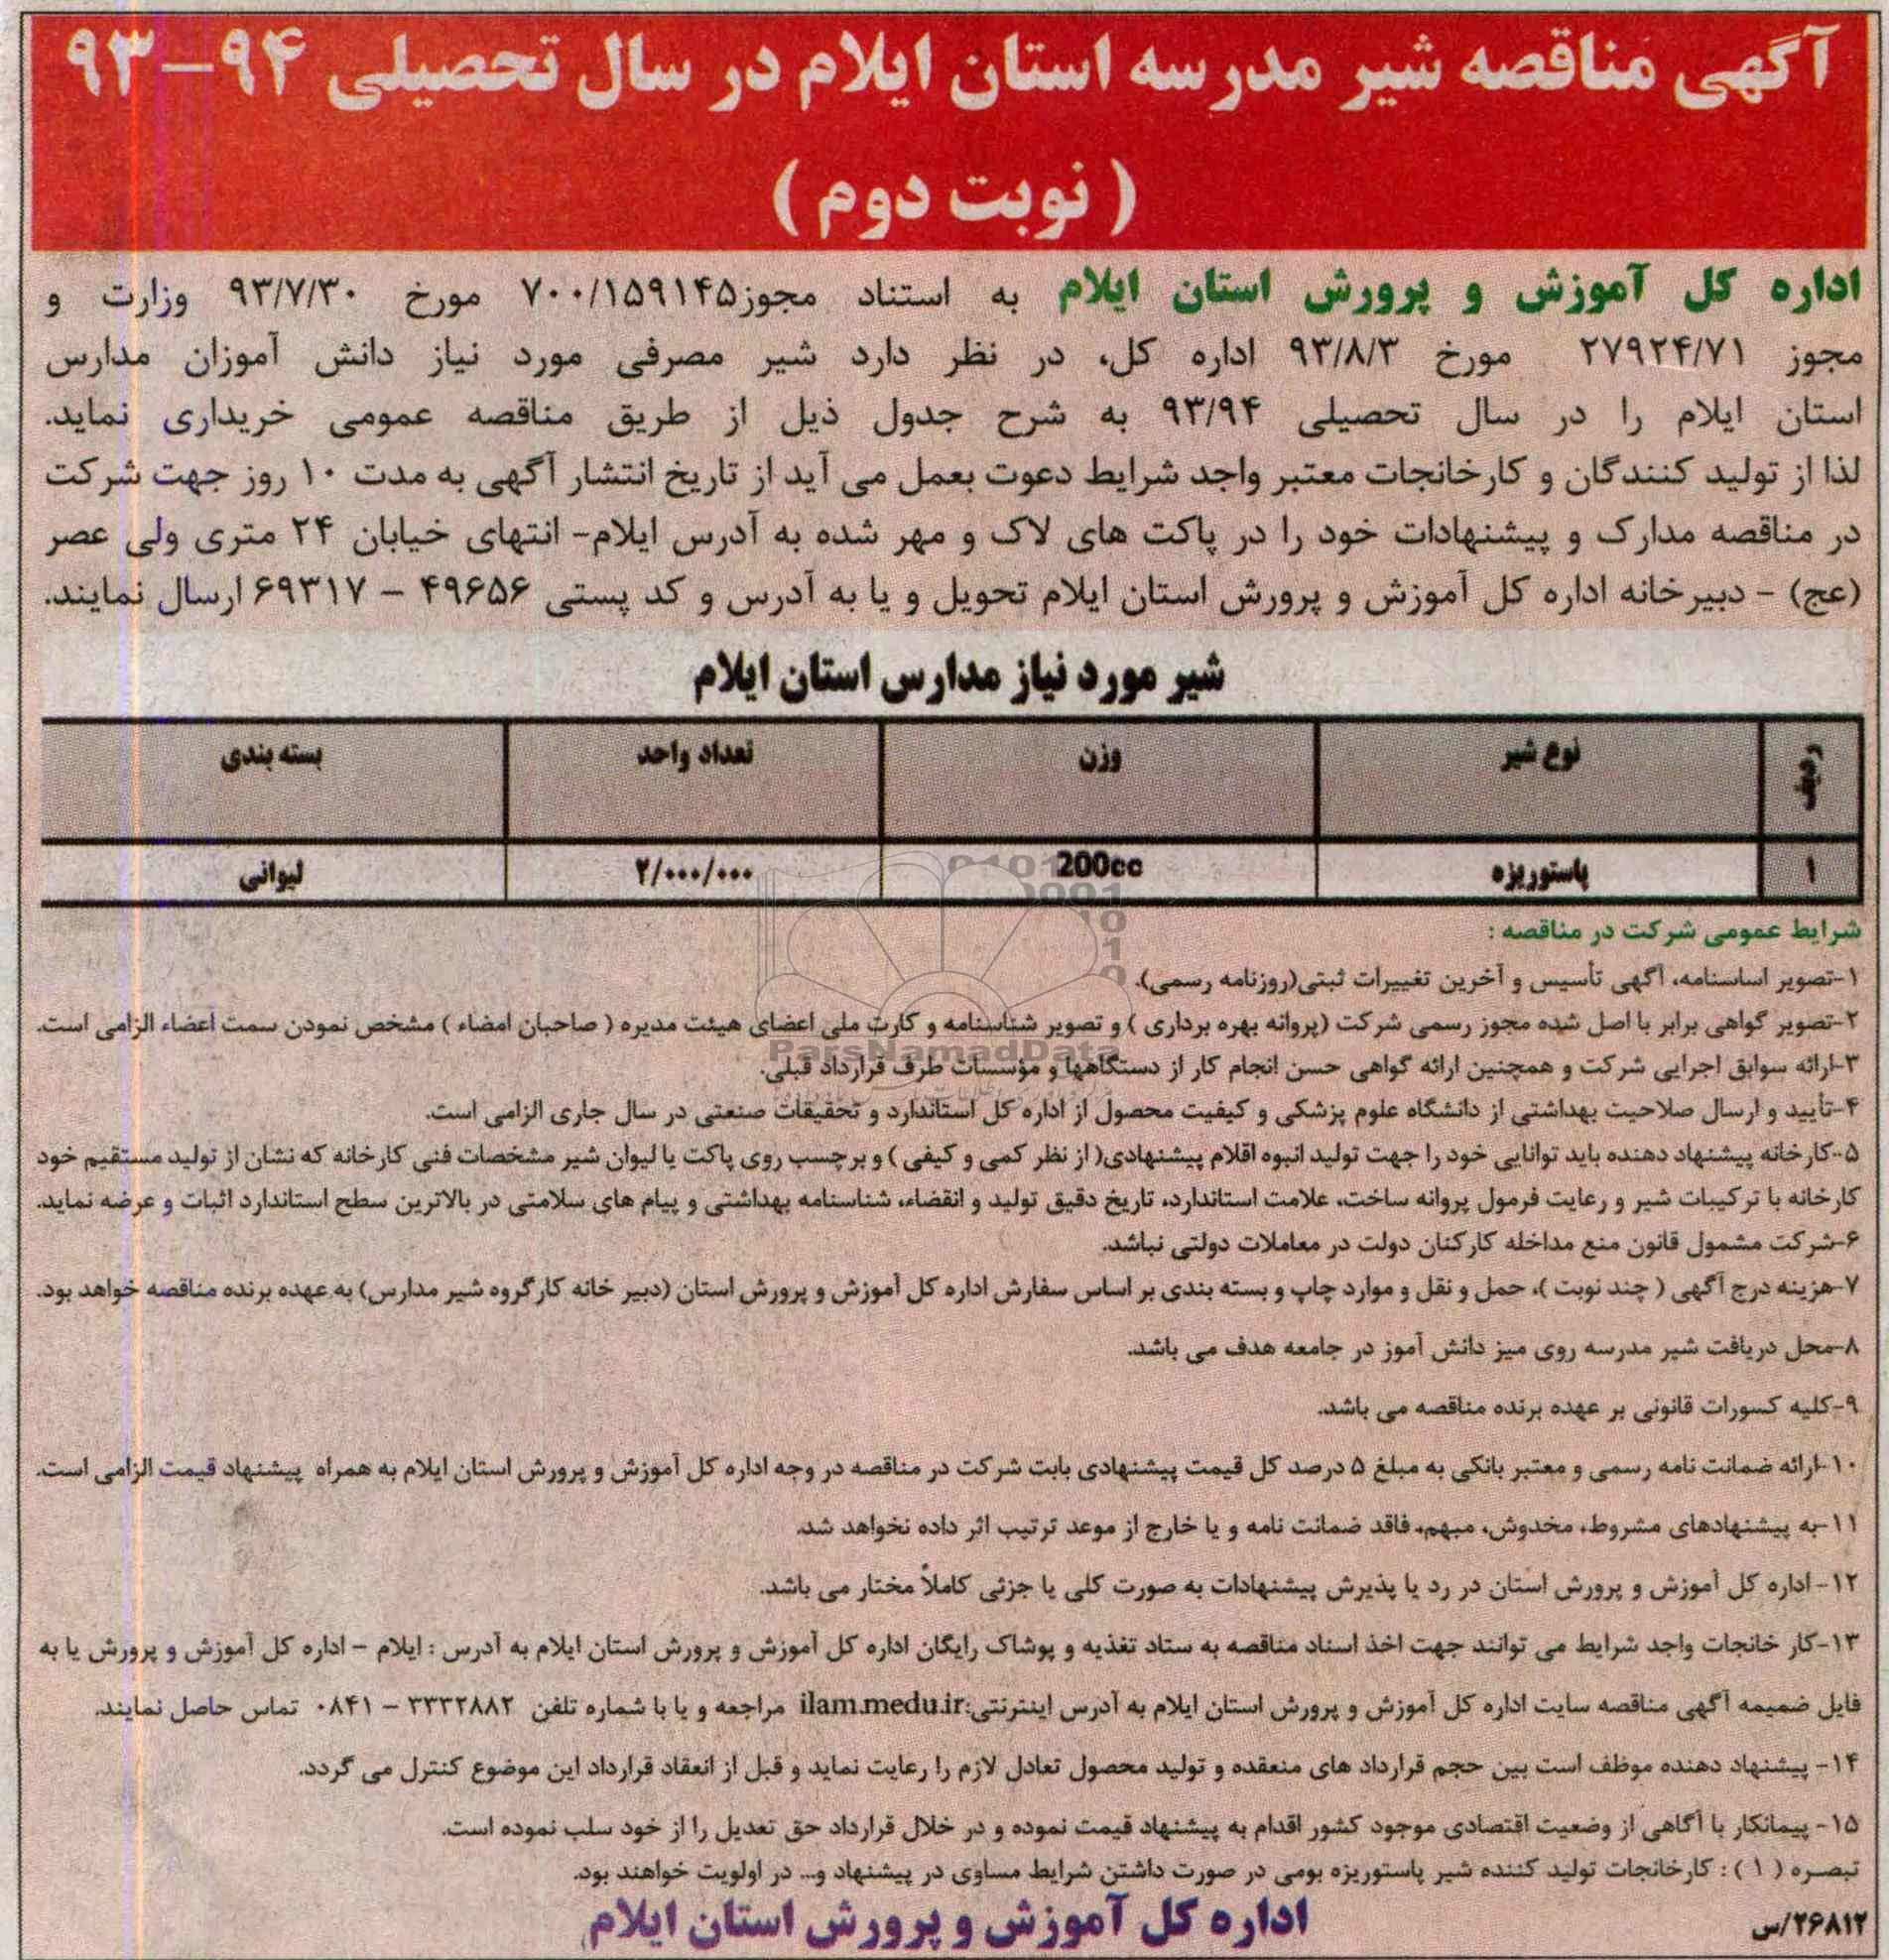 آگهی مناقصه شیر مدرسه استان ایلام در سال تحصیلی ۹۴-۹۳
( نوبت دوم )
اداره کل آموزش و پرورش استان ایلام به استناد مجوز۷۰۰/۱۵۹۱۴۵ مورخ ۹۳/۷/۳۰ وزارت و
مجوز ۲۷۹۲۴/۷۱ مورخ ۹۳/۸/۳ اداره کل، در نظر دارد شیر مصرفی مورد نیاز دانش آموزان مدارس
استان ایلام را در سال تحصیلی ۹۳/۹۴ به شرح جدول ذیل از طریق مناقصه عمومی خریداری نماید.
لذا از تولید کنندگان و کارخانجات معتبر واجد شرایط دعوت بعمل می آید از تاریخ انتشار آگهی به مدت ۱۰ روز جهت شرکت
در مناقصه مدارک و پیشنهادات خود را در پاکت های لاک و مهر شده به آدرس ایلام- انتهای خیابان ۲۴ متری ولی عصر
(عج) - دبیرخانه اداره کل آموزش و پرورش استان ایلام تحویل و یا به آدرس و کد پستی ۴۹۶۵۶ - ۶۹۳۱۷ ارسال نمایند.
شیر مورد نیاز مدارس استان ایلام
ردیف نوع شیر وزن تعداد واحد بسته بندی
۱ پاستوریزه 200cc ۲/۰۰۰/۰۰۰ لیوانی
شرایط عمومی شرکت در مناقصه :
۱-تصویر اساسنامه، آگهی تأسیس و آخرین تغییرات ثبتی(روزنامه رسمی).
۲-تصویر گواهی برابر با اصل شده مجوز رسمی شرکت (پروانه بهره برداری ) و تصویر شناسنامه و کارت ملی اعضای هیئت مدیره ( صاحبان امضاء ) مشخص نمودن سمت اعضاء الزامی است.
ParsNamadData
۳-ارائه سوابق اجرایی شرکت و همچنین ارائه گواهی حسن انجام کار از دستگاهها و مؤسسات طرف قرارداد قبلی.
۴-تأیید و ارسال صلاحیت بهداشتی از دانشگاه علوم پزشکی و کیفیت محصول از اداره کل استاندارد و تحقیقات صنعتی در سال جاری الزامی است.
۵-کارخانه پیشنهاد دهنده باید توانایی خود را جهت تولید انبوه اقلام پیشنهادی( از نظر کمی و کیفی ) و برچسب روی پاکت یا لیوان شیر مشخصات فنی کارخانه که نشان از تولید مستقیم خود
کارخانه با ترکیبات شیر و رعایت فرمول پروانه ساخت، علامت استاندارد، تاریخ دقیق تولید و انقضاء، شناسنامه بهداشتی و پیام های سلامتی در بالاترین سطح استاندارد اثبات و عرضه نماید.
۶-شرکت مشمول قانون منع مداخله کارکنان دولت در معاملات دولتی نباشد.
۷-هزینه درج آگهی ( چند نوبت )، حمل و نقل و موارد چاپ و بسته بندی بر اساس سفارش اداره کل آموزش و پرورش استان (دبیر خانه کارگروه شیر مدارس) به عهده برنده مناقصه خواهد بود.
۸-محل دریافت شیر مدرسه روی میز دانش آموز در جامعه هدف می باشد.
۹-کلیه کسورات قانونی بر عهده برنده مناقصه می باشد.
۱۰-ارائه ضمانت نامه رسمی و معتبر بانکی به مبلغ ۵ درصد کل قیمت پیشنهادی بابت شرکت در مناقصه در وجه اداره کل آموزش و پرورش استان ایلام به همراه پیشنهاد قیمت الزامی است.
۱۱-به پیشنهادهای مشروط، مخدوش، مبهم، فاقد ضمانت نامه و یا خارج از موعد ترتیب اثر داده نخواهد شد.
۱۲- اداره کل آموزش و پرورش استان در رد یا پذیرش پیشنهادات به صورت کلی یا جزئی کاملاً مختار می باشد.
۱۳-کار خانجات واجد شرایط می توانند جهت اخذ اسناد مناقصه به ستاد تغذیه و پوشاک رایگان اداره کل آموزش و پرورش استان ایلام به آدرس : ایلام - اداره کل آموزش و پرورش یا به
فایل ضمیمه آگهی مناقصه سایت اداره کل آموزش و پرورش استان ایلام به آدرس اینترنتی:ilam.medu.ir مراجعه و یا با شماره تلفن ۳۳۳۲۸۸۲ - ۰۸۴۱ تماس حاصل نمایند.
۱۴- پیشنهاد دهنده موظف است بین حجم قرارداد های منعقده و تولید محصول تعادل لازم را رعایت نماید و قبل از انعقاد قرارداد این موضوع کنترل می گردد.
۱۵- پیمانکار با آگاهی از وضعیت اقتصادی موجود کشور اقدام به پیشنهاد قیمت نموده و در خلال قرارداد حق تعدیل را از خود سلب نموده است.
تبصره ( ۱ ) : کارخانجات تولید کننده شیر پاستوریزه بومی در صورت داشتن شرایط مساوی در پیشنهاد و... در اولویت خواهند بود.
اداره کل آموزش و پرورش استان ایلام
۲۶۸۱۲/س